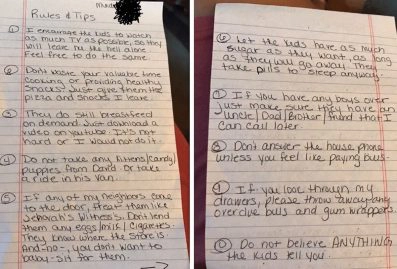 Rules & Tips
① I encourage the kids to watch
as much TV as possible, so they
will leave me the hell alone
Feel free to do the same.
② Don't waste your valuable time
cooking or providing healthy
snacks. Just give them the
pizza and snacks I leave.
③ They do still breastfeed
on demand. Just download a
video on youtube. It's not
hard or I would not do it.
④ Do not take any kittens/candy/
puppies from David. Or take
a ride in his van.
⑤ If any of my neighbors come
to the door, treat them like
Jehovah's Witness. Don't lend
them any eggs/milk/cigarettes.
They know where the store is.
And -no-, you don't want to
baby-sit for them.
⑥ Let the kids have as much
sugar as they want, as long
as they will go away. They
take pills to sleep anyway.
⑦ If you have any boys over
just make sure they have an
Uncle/Dad/Brother/friend that I
can call later.
⑧ Don't answer the house phone
unless you feel like paying bills.
⑨ If you look through my
drawers, please throw away any
overdue bills and gum wrappers.
⑩ Do not believe ANYTHING
the kids tell you.